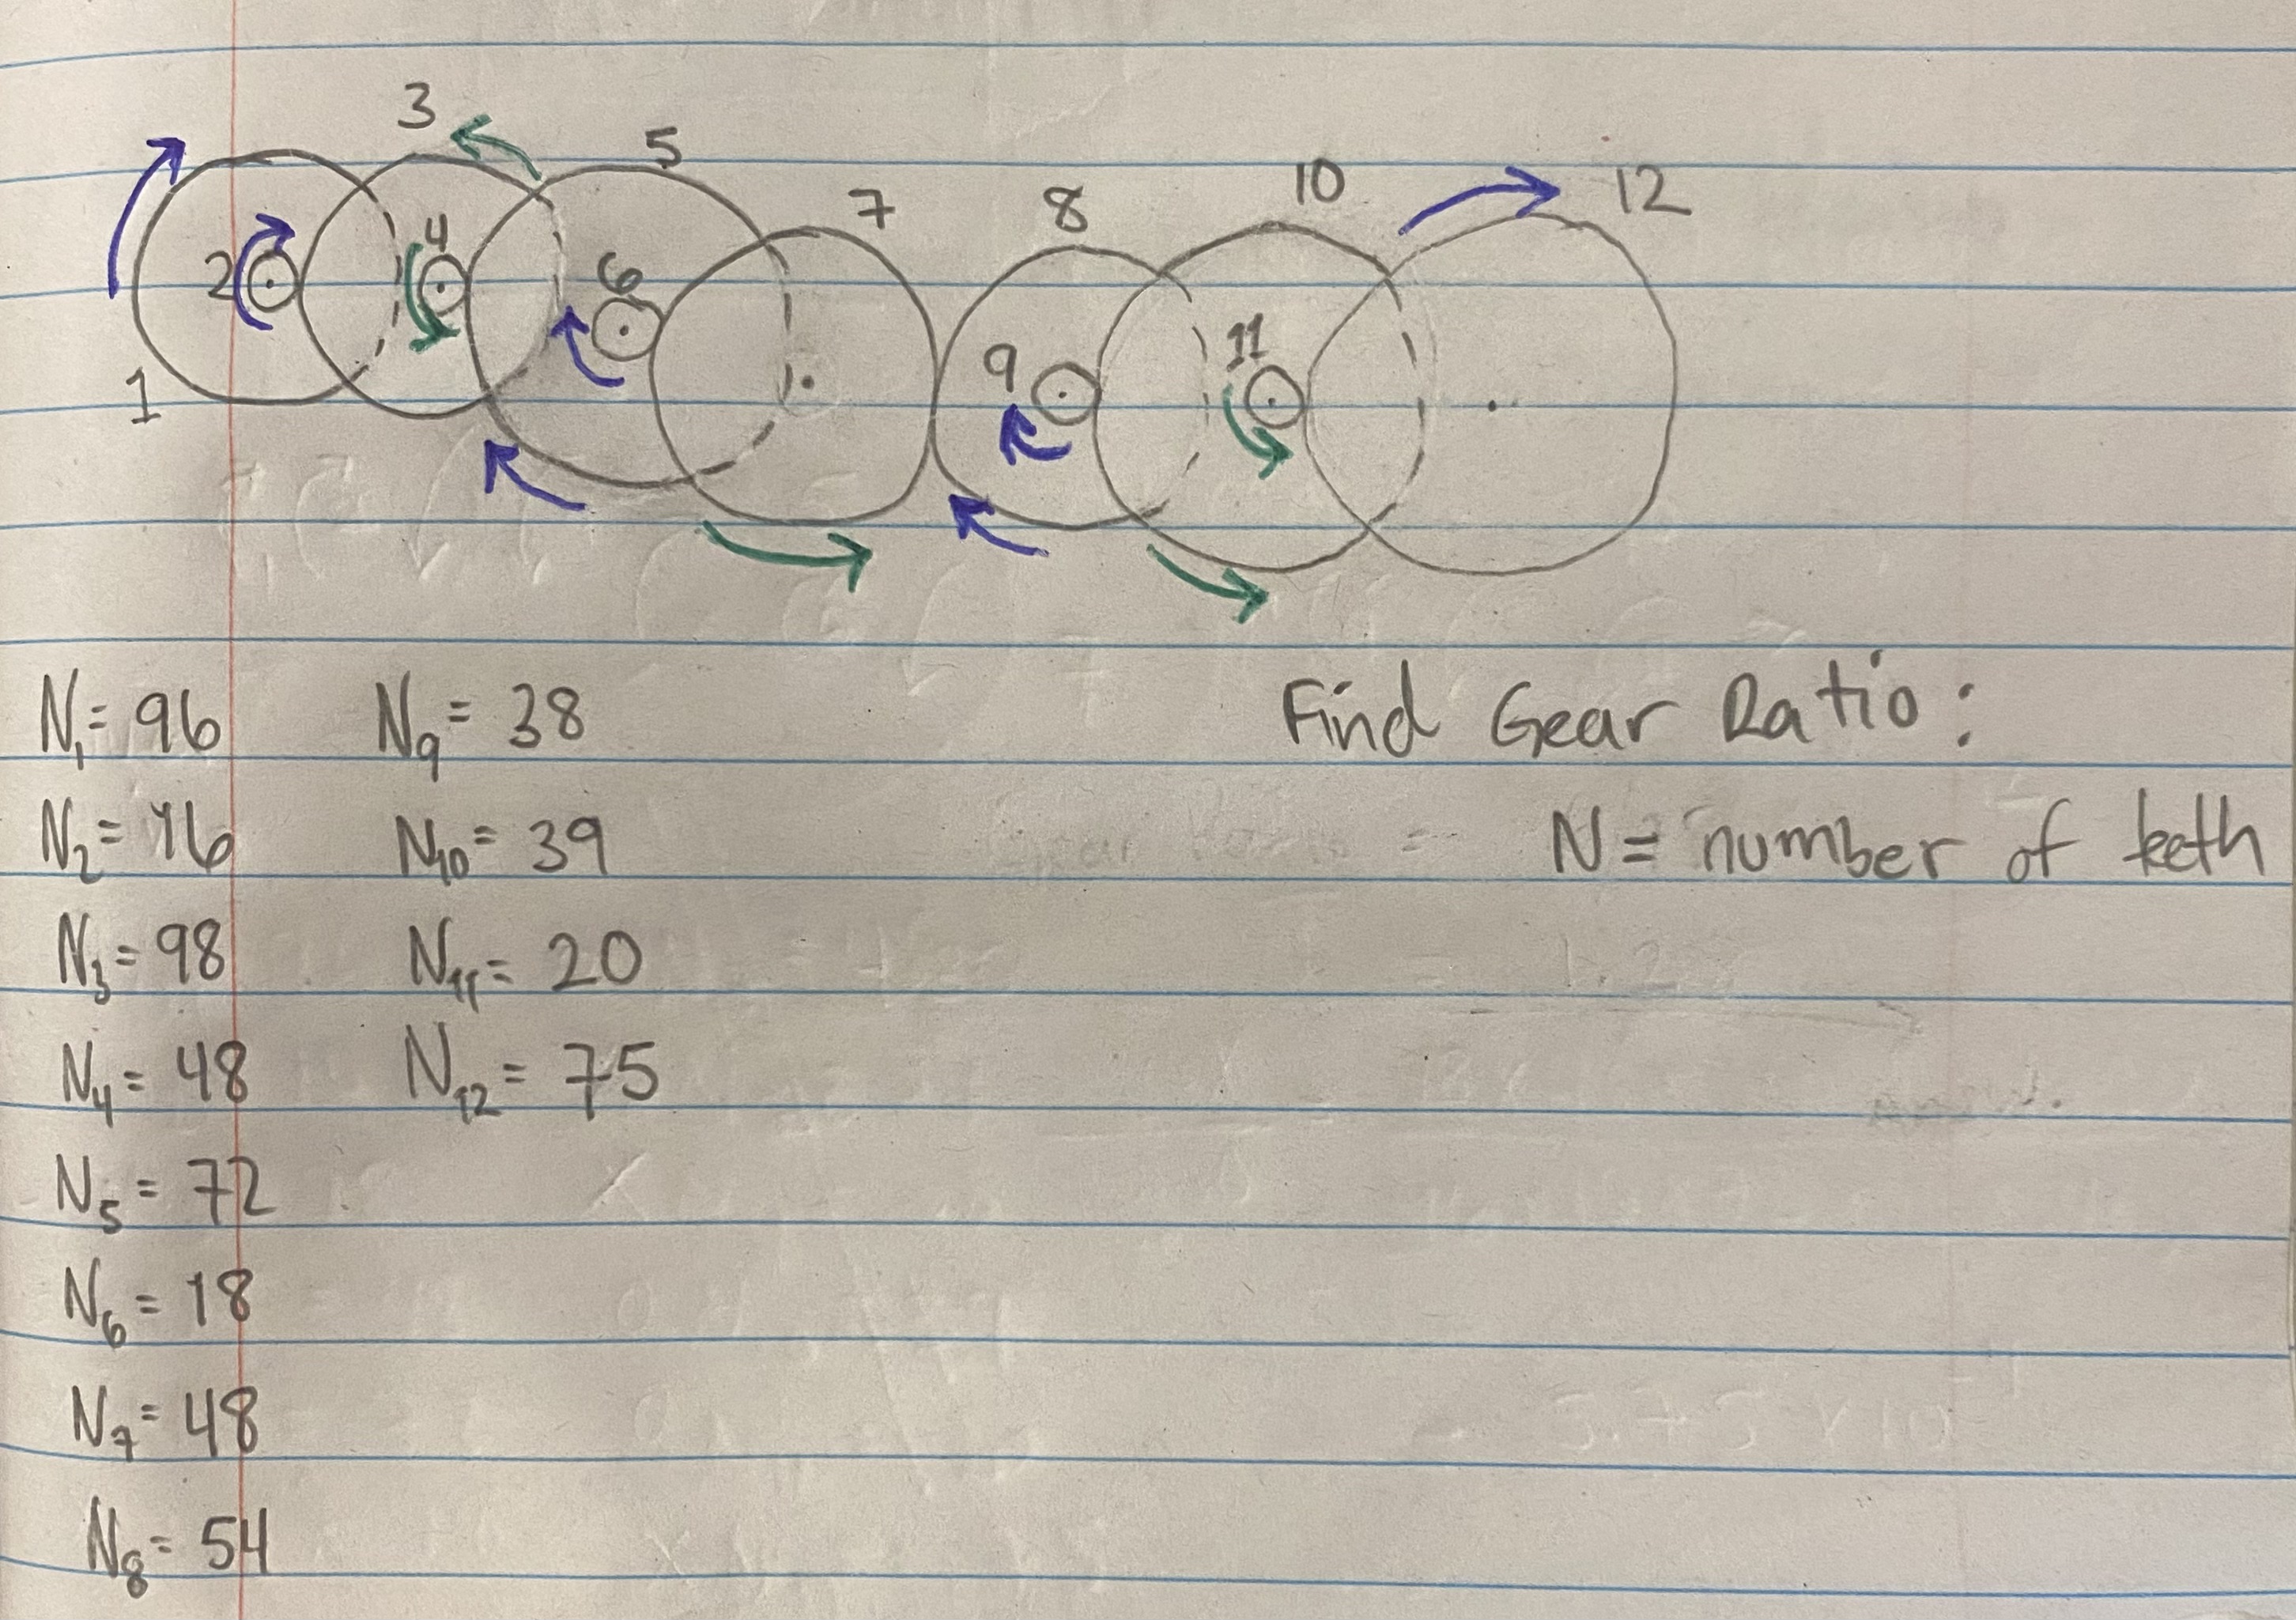 3
5
7
8
10
12
2
4
6
9
11
1
N₁ = 96
N₂ = 46
N₃ = 98
N₄ = 48
N₅ = 72
N₆ = 18
N₇ = 48
N₈ = 54
N₉ = 38
N₁₀ = 39
N₁₁ = 20
N₁₂ = 75
Find Gear Ratio:
N = number of teeth